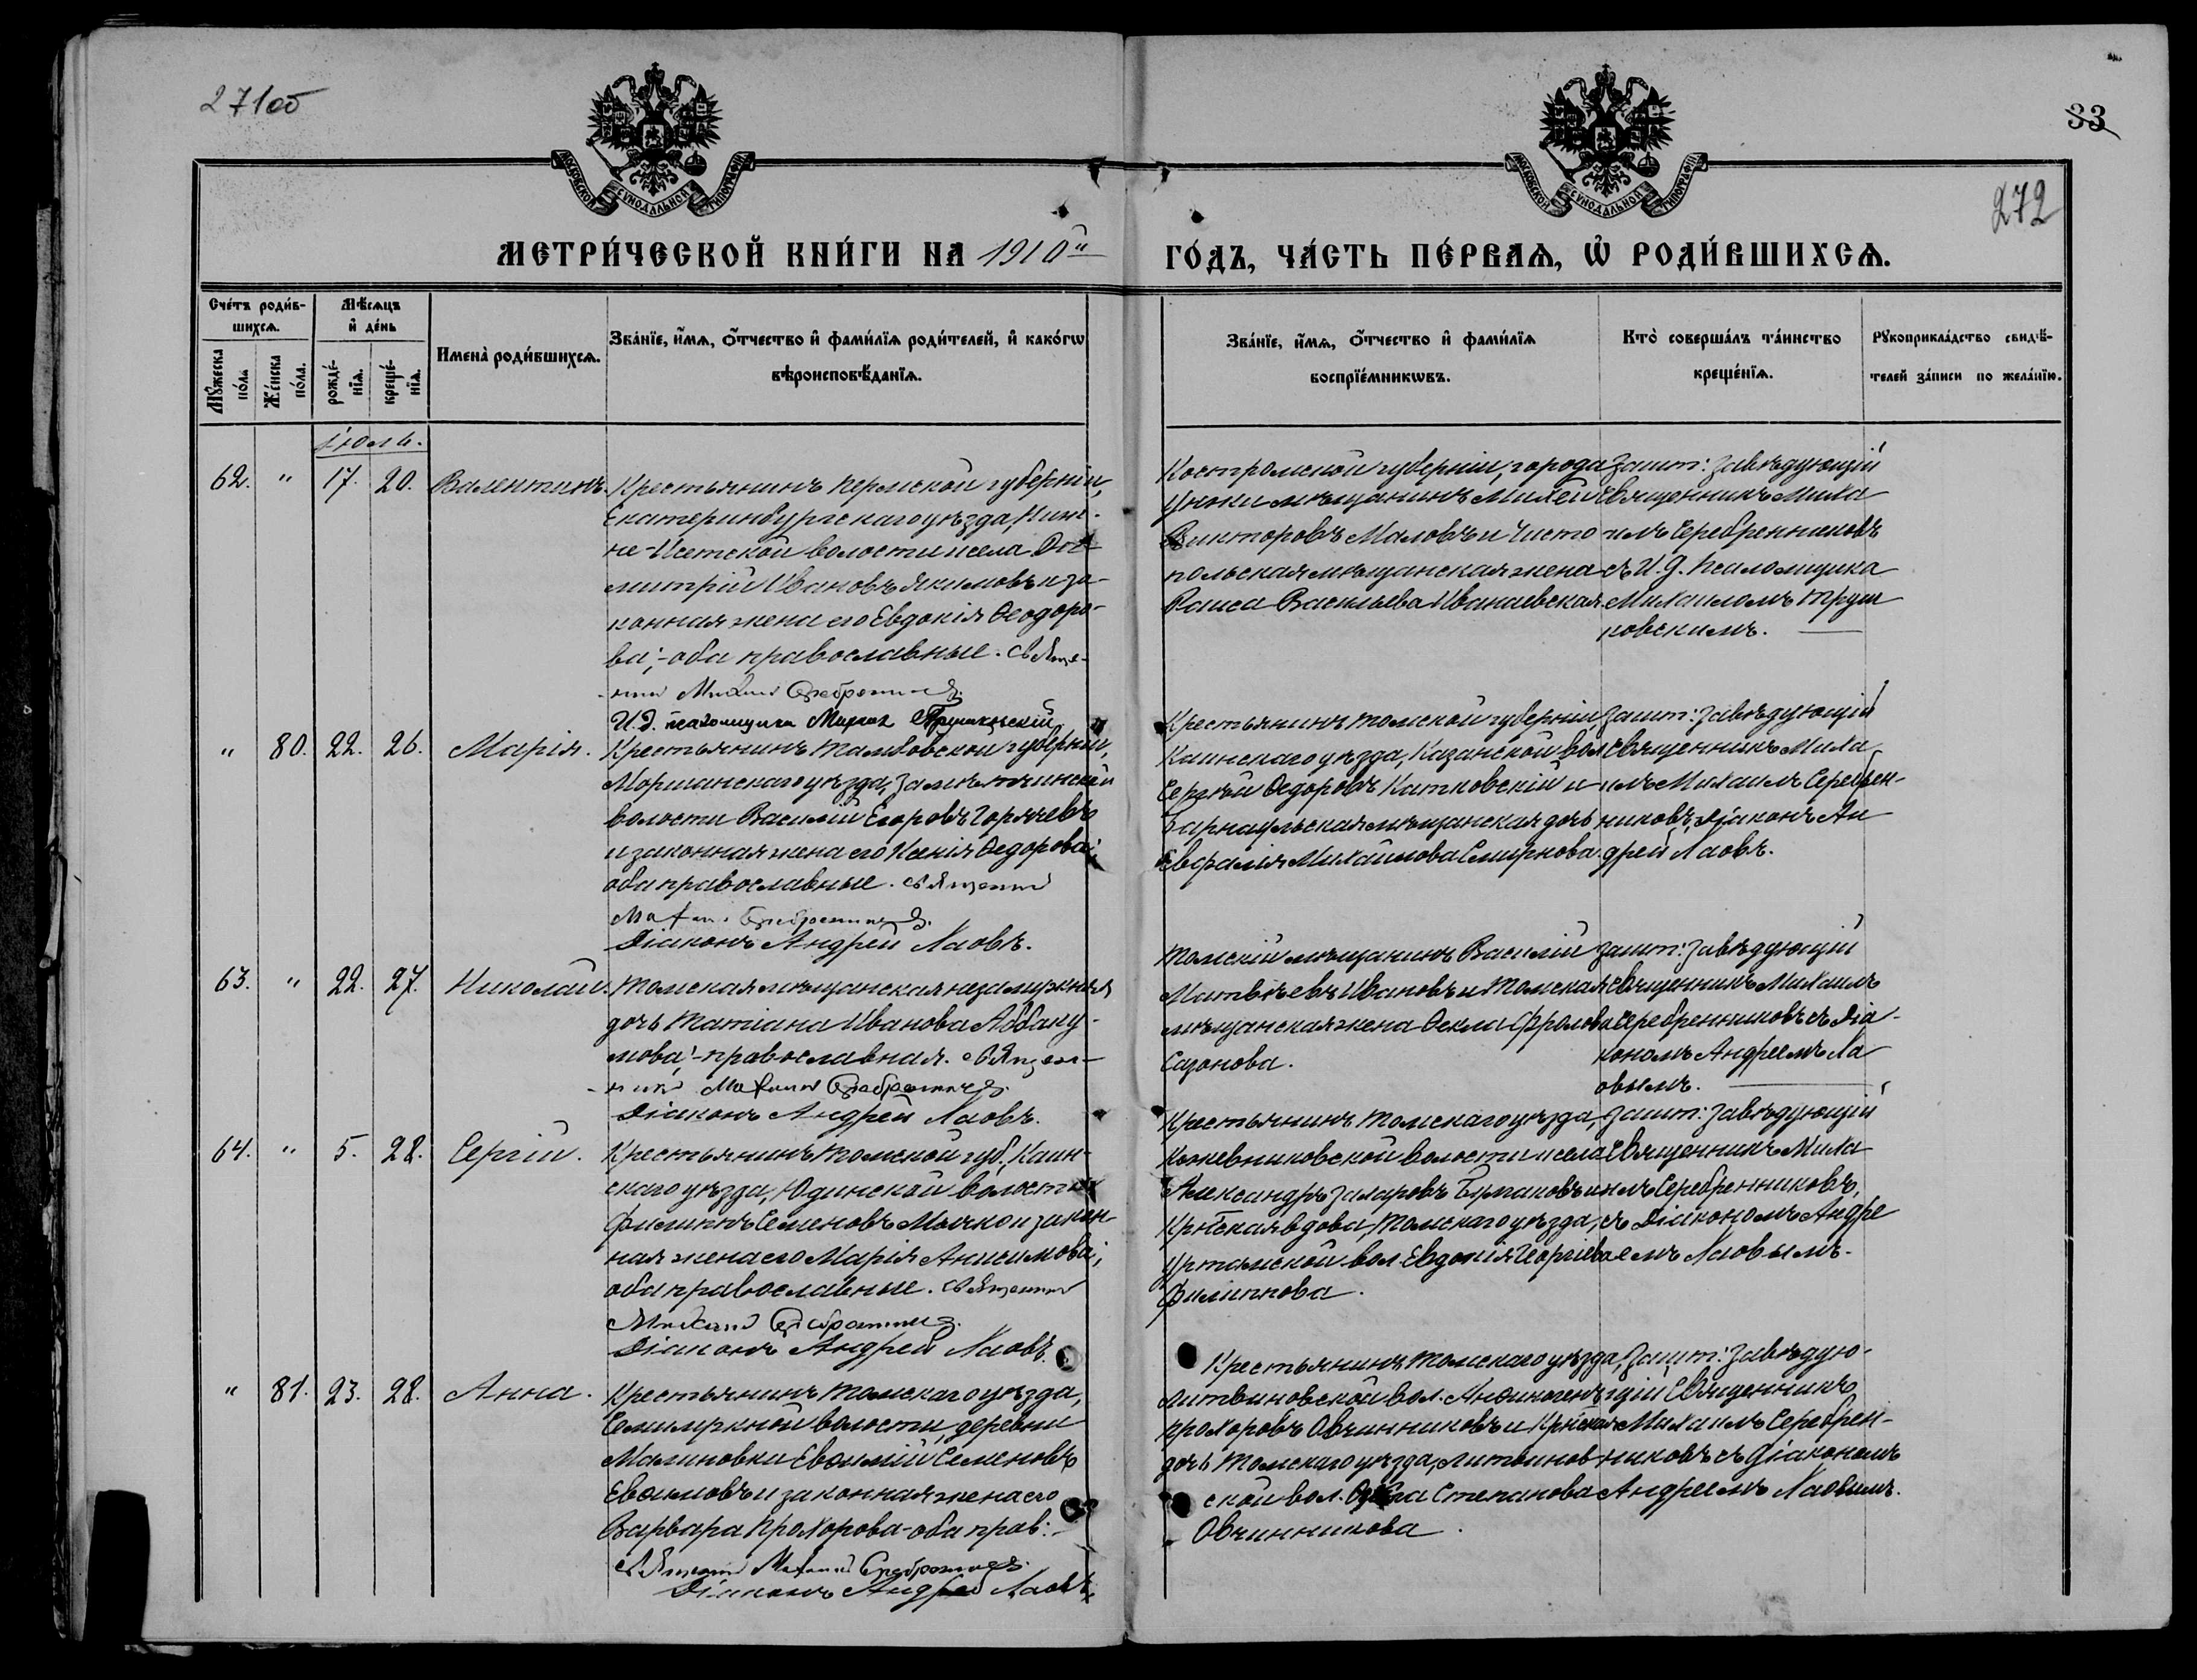 271об
33
272
МОСКОВСКОЙ СѴНОДАЛЬНОЙ ТИПОГРАФІИ
МОСКОВСКОЙ СѴНОДАЛЬНОЙ ТИПОГРАФІИ
МЕТРИ́ЧЕСКОЙ КНИ́ГИ НА 1910й ГО́ДЪ, ЧА́СТЬ ПЕ́РВАѦ, Ѡ҆ РОДИ́ВШИХСѦ.
Сче́тъ роди́в-
шихсѧ.
Мѣ́сѧцъ
и҆ де́нь
Мꙋ́жеска
по́ла
Же́нска
по́ла.
рожде́-
нїѧ.
креще́-
нїѧ.
Имена̀ роди́вшихсѧ.
Зва́нїе, и҆́мѧ, ѻ҆́тчество и҆ фами́лїѧ роди́телей, и҆ како́гѡ
вѣроисповѣ́данїѧ.
Зва́нїе, и҆́мѧ, ѻ҆́тчество и҆ фами́лїѧ
воспрїе́мникѡвъ.
Кто̀ соверша́лъ та́инство
креще́нїѧ.
Рꙋкоприкла́дство свидѣ́-
телей за́писи по жела́нїю.
Іюль.
62. " 17. 20. Валентинъ.
Крестьянинъ Пермской губерніи,
Екатеринбургскаго уѣзда, Ниж-
не-Исетской волости и села
Димитрій Ивановъ Якимовъ и за-
конная жена его Евдокія Ѳеодоро-
ва; - оба православные. Священ-
никъ Михаилъ Серебренниковъ.
И. д. псаломщика Михаилъ Трушковскій
Костромской губерніи, города
Унжи мѣщанинъ Михей
Викторовъ Маловъ и Чисто
польская мѣщанская жена
Раиса Васильева Иванаевская
Зашт: Завѣдующій
Священникъ Миха
илъ Серебренниковъ
съ И. д. Псаломщика
Михаиломъ Труш
ковскимъ.
" 80. 22. 26. Марія.
Крестьянинъ Тамбовской губерніи,
Моршанскаго уѣзда, Замѣтчинской
волости Василій Егоровъ Горячевъ
и законная жена его Ксенія Ѳедорова;
оба православные. Священникъ
Михаилъ Серебренниковъ.
Діаконъ Андрей Лаовъ.
Крестьянинъ Томской губерніи,
Каинскаго уѣзда, Казанской вол
Сергѣй Ѳедоровъ Катковскій и
Барнаульская мѣщанская дочь
Евфалія Михаилова Смирнова.
Зашт: Завѣдующій
Священникъ Миха
илъ Михаилъ Серебрен-
никовъ, Діаконъ Ан
дрей Лаовъ.
63. " 22. 27. Николай.
Томская мѣщанская незамужняя
дочь Татіана Иванова Аббаку-
мова; - православная. Священ-
никъ Михаилъ Серебренниковъ.
Діаконъ Андрей Лаовъ.
Томскій мѣщанинъ Василій
Матвѣевъ Ивановъ и Томская
мѣщанская жена Ѳекла Фролова
Сазонова.
Зашт: Завѣдующій
Священникъ Михаилъ
Серебренниковъ съ Діа-
кономъ Андреемъ Ла
овымъ.
64. " 5. 28. Сергій.
Крестьянинъ Томской губ., Каин-
скаго уѣзда, Юдинской волости
Филиппъ Семеновъ Мычко и закон-
ная жена его Марія Анисимова;
оба православные. Священникъ
Михаилъ Серебренниковъ.
Діаконъ Андрей Лаовъ.
Крестьянинъ Томскаго уѣзда,
Кожевниковской волости и села
Александръ Захаровъ Бурмаковъ и
Крнская вдова, Томскаго уѣзда,
Уртамской вол. Евдокія Георгіева
Филиппова.
Зашт: Завѣдующій
Священникъ Миха
илъ Серебренниковъ,
съ Діакономъ Андре
емъ Лаовымъ.
" 81. 23. 28. Анна.
Крестьянинъ Томскаго уѣзда,
Семилужной волости, деревни
Малиновки Евѳимій Семеновъ
Евѳимовъ и законная жена его
Варвара Прохорова - оба прав:
Священникъ Михаилъ Серебренниковъ.
Діаконъ Андрей Лаовъ.
Крестьянинъ Томскаго уѣзда,
Литвиновской вол. Анѳиногенъ
Прохоровъ Овчинниковъ и Крнская
дочь Томскаго уѣзда, Литвинов-
ской вол. Степанова
Овчинникова.
Зашт: Завѣдую-
щій Священникъ
Михаилъ Серебрен-
никовъ съ Діакономъ
Андреемъ Лаовымъ.